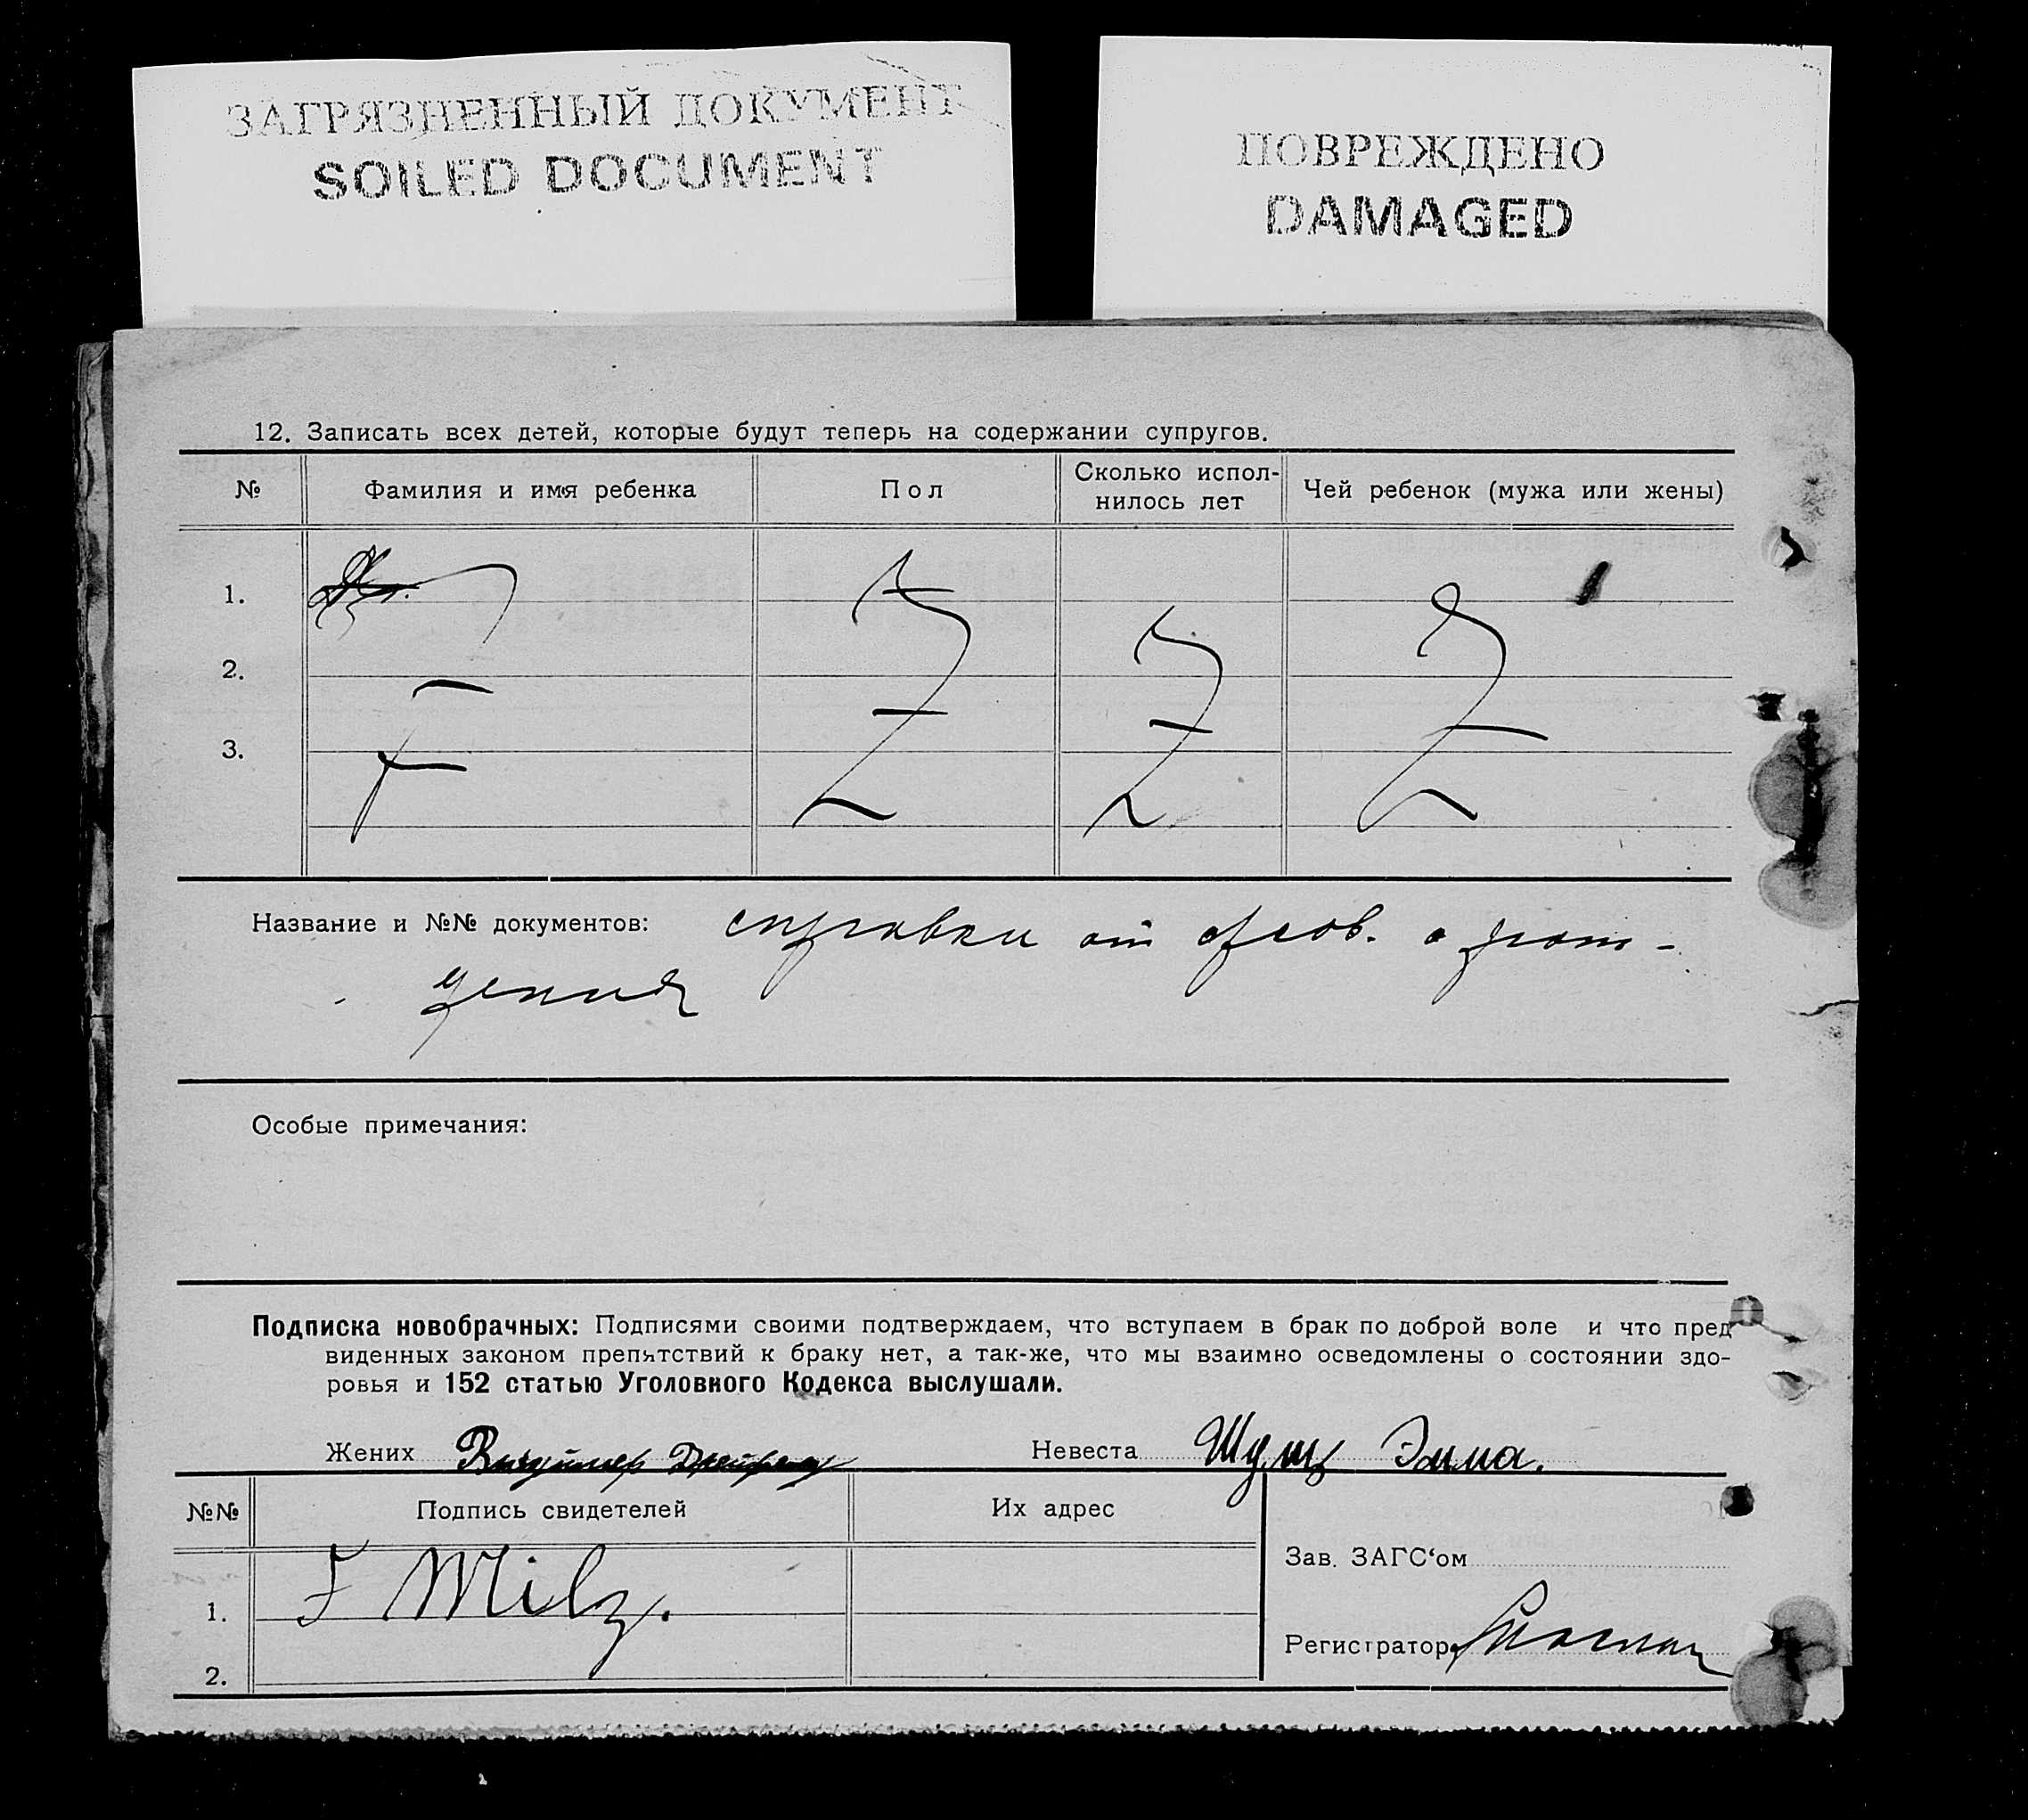 ЗАГРЯЗНЕННЫЙ ДОКУМЕНТ
SOILED DOCUMENT
ПОВРЕЖДЕНО
DAMAGED
12. Записать всех детей, которые будут теперь на содержании супругов.
№ Фамилия и имя ребенка Пол Сколько испол-нилось лет Чей ребенок (мужа или жены)
1.
2.
3.
Название и №№ документов: справки от о рож-
дения
Особые примечания:
Подписка новобрачных: Подписями своими подтверждаем, что вступаем в брак по доброй воле и что пред
виденных законом препятствий к браку нет, а так-же, что мы взаимно осведомлены о состоянии здо-
ровья и 152 статью Уголовного Кодекса выслушали.
Жених Невеста Шульц Эмма.
№№ Подпись свидетелей Их адрес
Зав. ЗАГС‘ом
1. F Milz.
Регистратор
2.